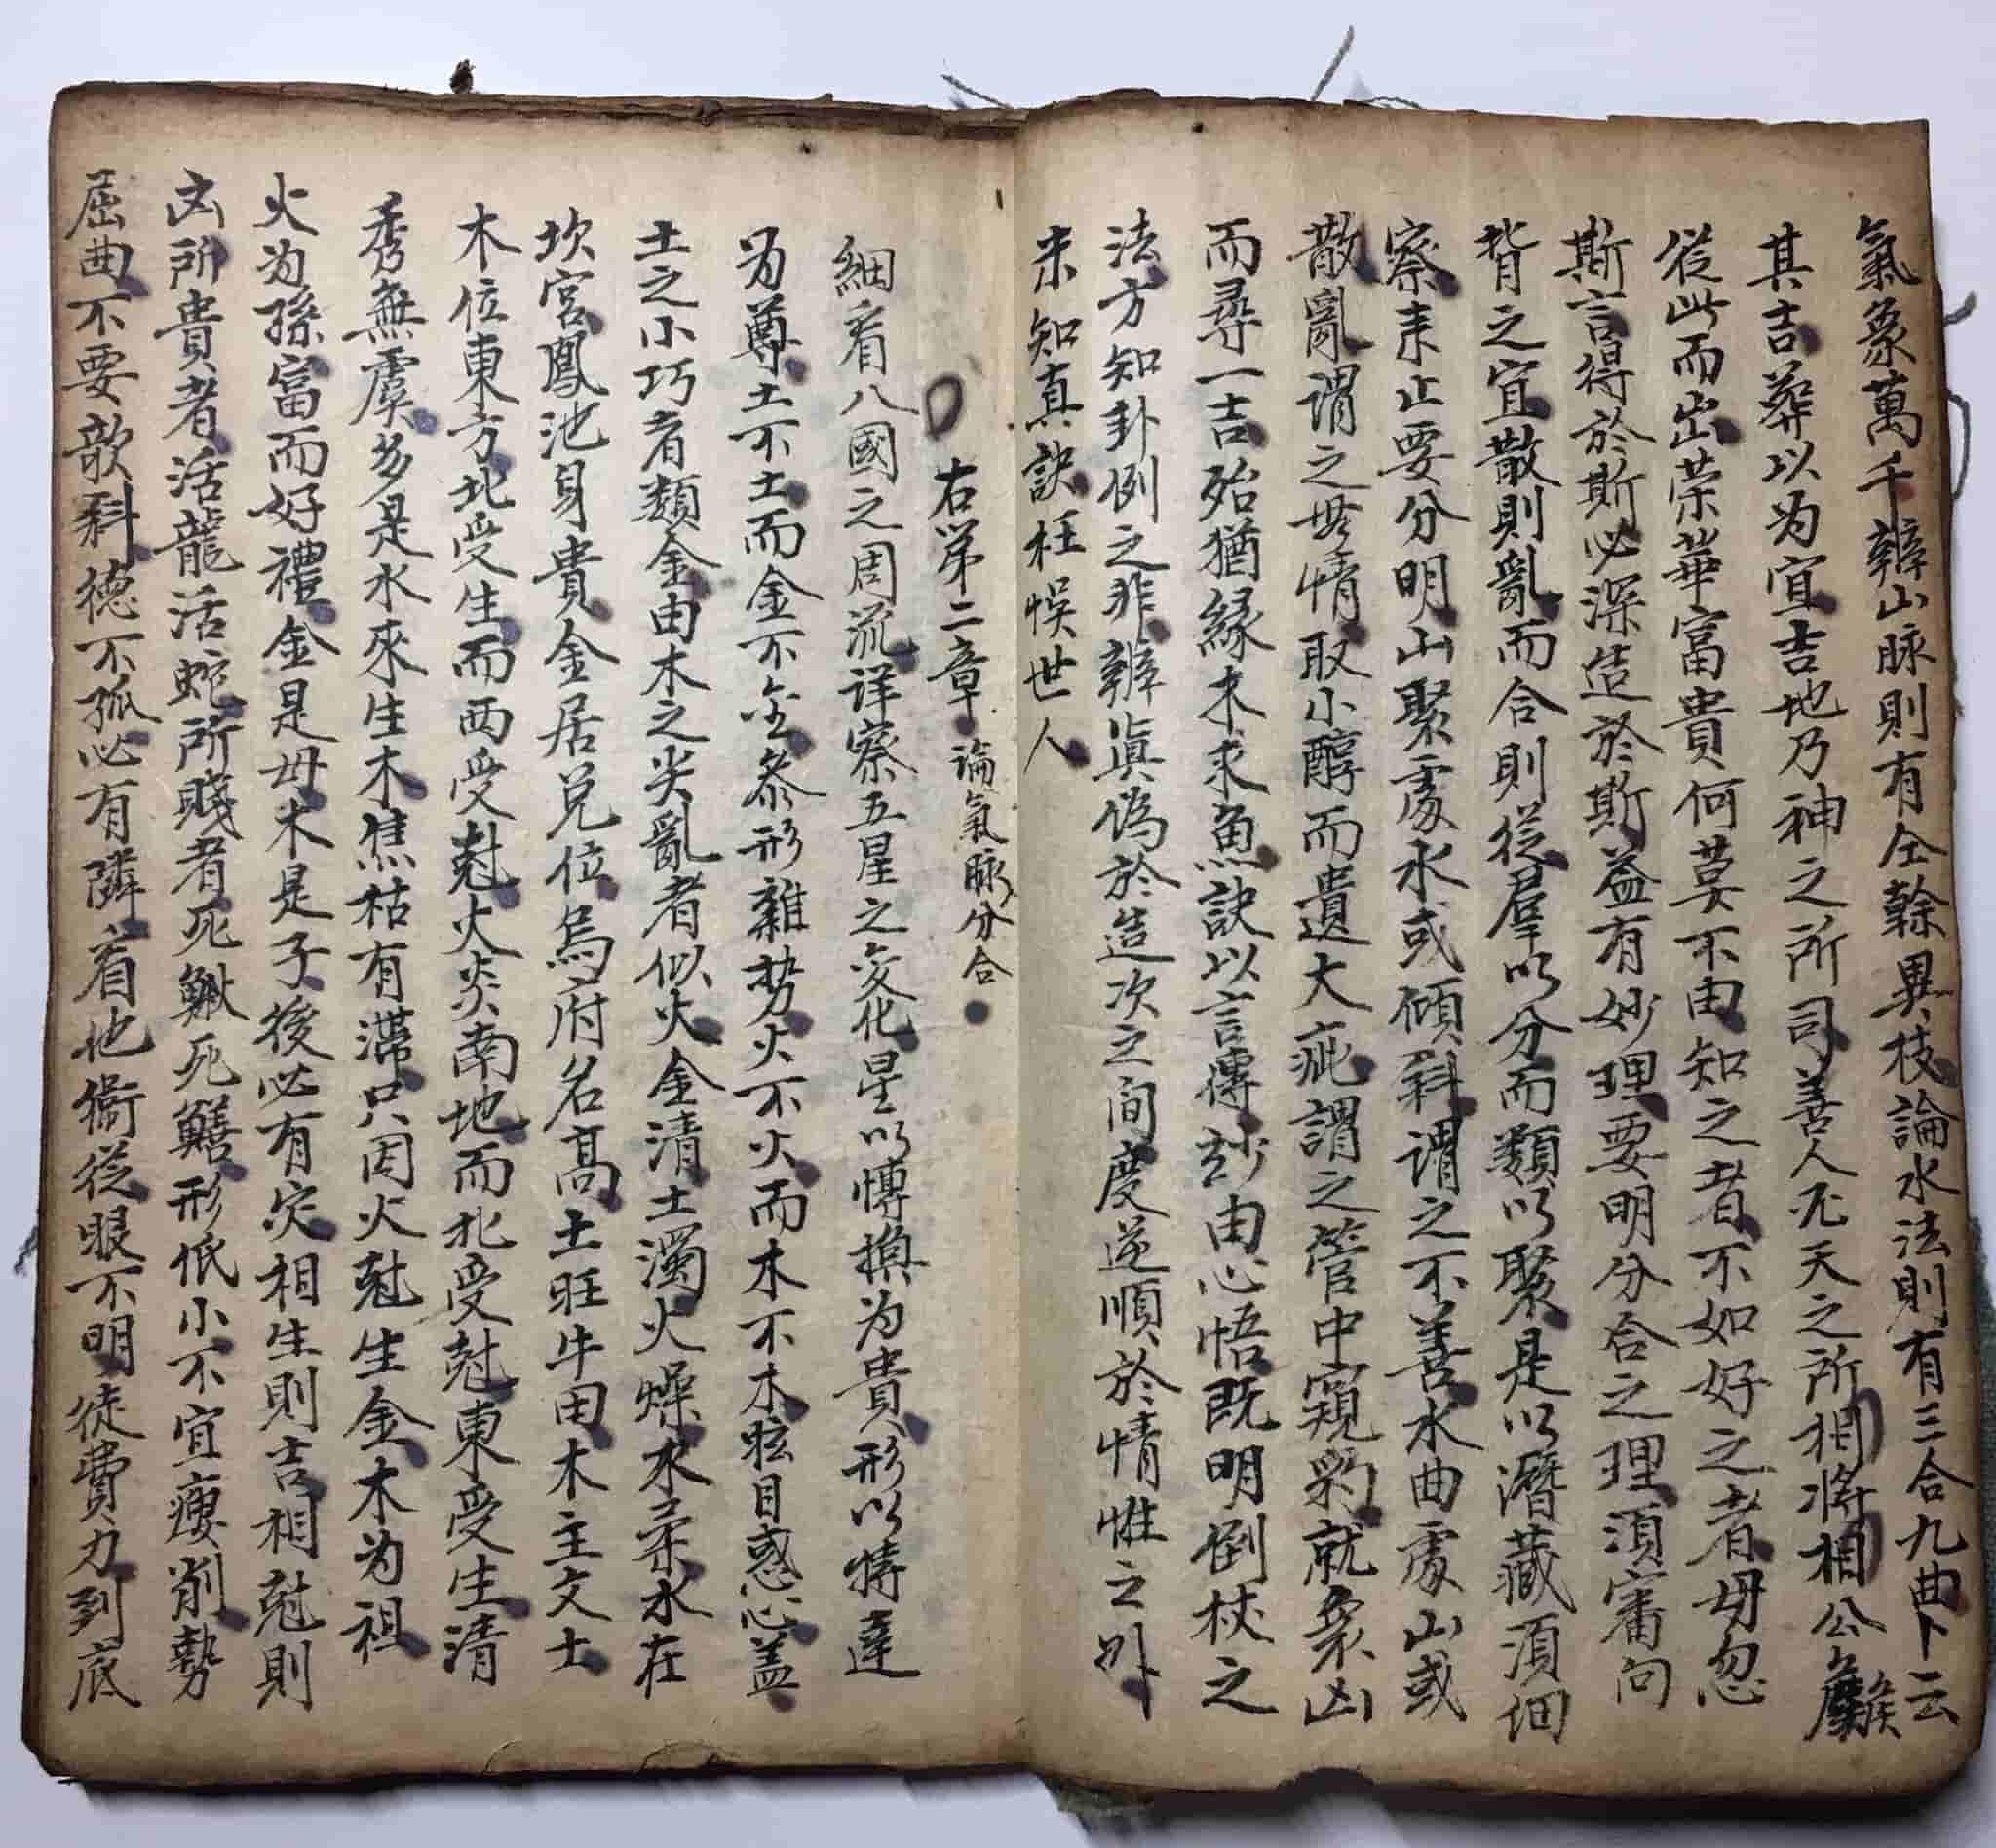 氣象萬千辦山脉則有仝幹異枝論水法則有三合九曲卜云
其吉葬以为宜吉地乃神之所司善人天之所相將相公侯
從此而出荣華富貴何莫不由知之者不如好之者毋忽
斯言得於斯必深造於斯益有妙理要明分合之理須審向
背之宜散則亂而合則從群以分而類以聚是以潛藏須細
察来止要分明山聚處水或傾斜謂之不善水曲處山或
散亂謂之無情取小醇而遺大疵謂之管中窺豹就衆凶
而尋一吉殆猶緣木求魚訣以言傳玅由心悟既明倒杖之
法方知卦例之非辦眞偽於造次之间度逆順於情性之別
未知真訣枉悞世人
右第二章 論氣脉分合
細看八國之周流详察五星之变化星以博換为貴形以特達
为尊土不土而金不金参形雜势火不火而木不木眩目惑心盖
土之小巧者類金由木之尖亂者似火金清土濁火燥水柔水在
坎宮鳳池身貴金居兌位烏府名髙土旺牛田木主文士
木位東方北受生而西受尅火炎南地而北受尅東受生清
秀無虞多是水來生木焦枯有滯只因火尅生金木为祖
火为孫富而好禮金是母木是子後必有灾相生則吉相尅則
凶所貴者活龍活蛇所賤者死鰍死鱔形低小不宜瘦削勢
屈曲不要欹斜德不孤必有隣看他衛從眼不明徒費力到底